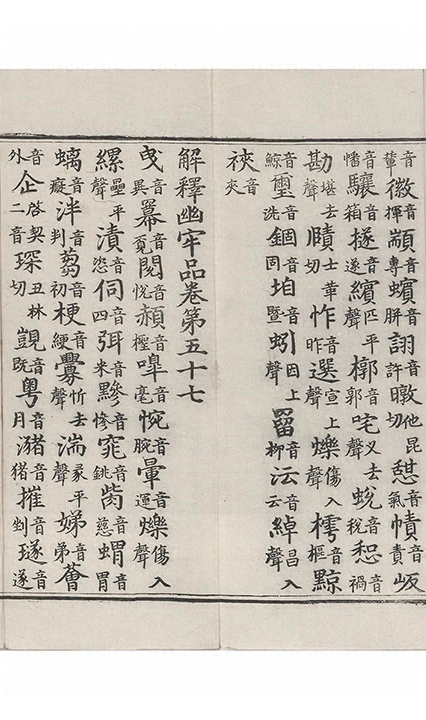 音葷徽音揮顓音專蠙音駢詡音許暾他昆切憇音氣幘音責岅
音幡驤音箱㯔音遂繽匹平聲槨音郭咤义去聲蛻音稅惒音禍
勘堪去聲賾士革切怍音昨選宣上聲爍傷入聲樗音樞黥
音鯨璽音洗錮音固垍音暨蚓因上聲罶音柳沄音云綽昌入聲
裌音夾
解釋幽牢品卷第五十七
曵音異冪音覓閱音悅頳音檉嘷音毫惋音腕暈音運爍傷入聲
縲壘平聲漬音恣伺音四弭音米黲音慘窕音銚胔音慈蝟音胃
螭音癡泮音判蒭音初梗音綆釁忻去聲湍彖平聲娣音弟薈
音外企啓契二音琛丑林切覬音旣粤音月瀦音猪摧音剉璲音遂